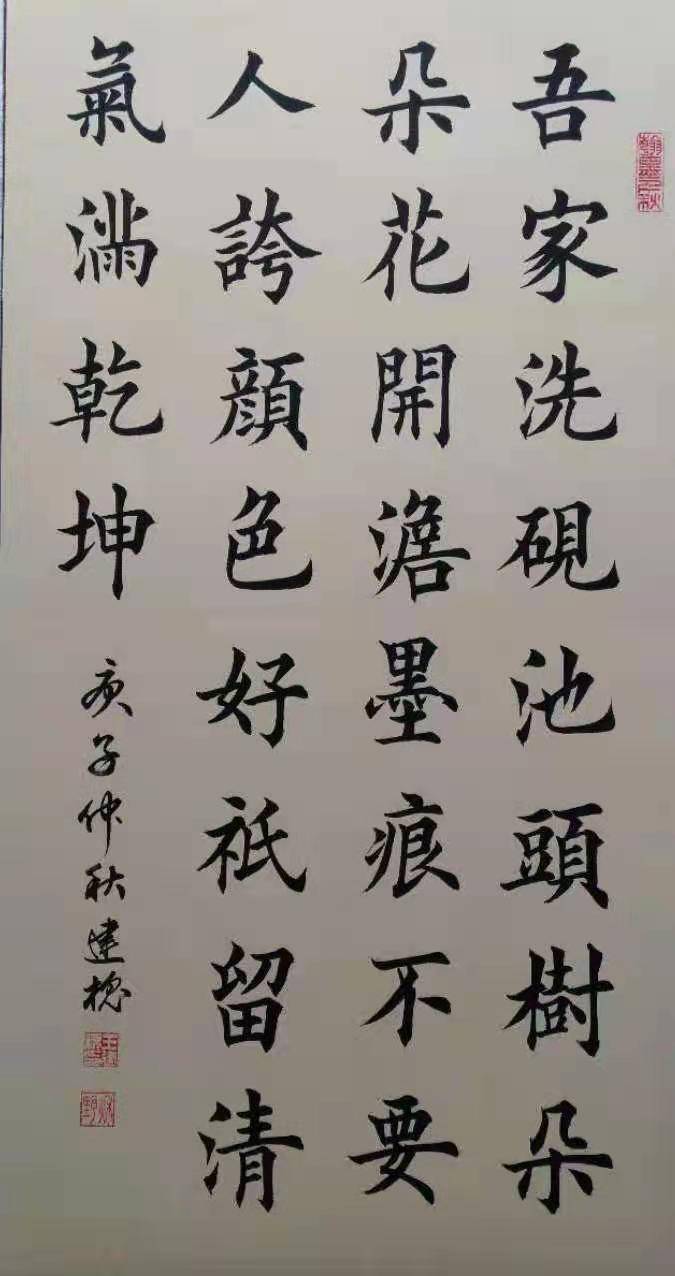 吾家洗硯池頭樹朵
朵花開澹墨痕不要
人誇顏色好祇留清
氣滿乾坤
庚子仲秋建